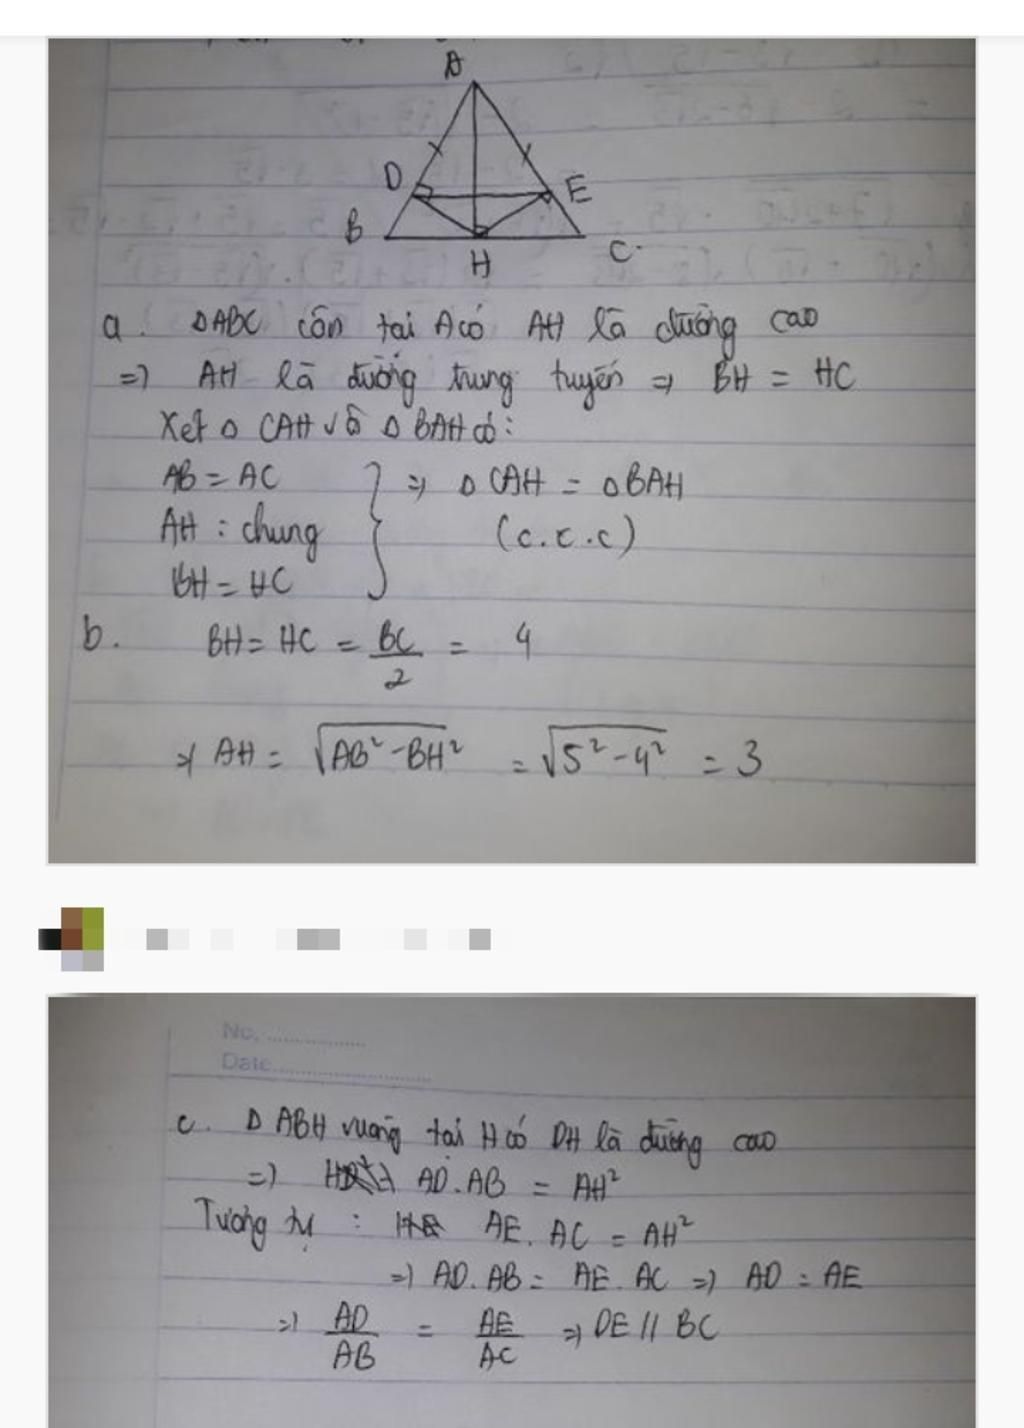 A
D
E
B
H
C
a. ΔABC cân tại A có AH là đường cao
=> AH là đường trung tuyến => BH = HC
Xét Δ CAH và Δ BAH có:
AB = AC
=> Δ CAH = ΔBAH
AH : chung
(c.c.c)
BH = HC
b. BH = HC = BC/2 = 4
=> AH = √(AB² - BH²) = √(5² - 4²) = 3
No. ...............
Date ...............
c. Δ ABH vuông tại H có DH là đường cao
=> AD.AB = AH²
Tương tự : AE. AC = AH²
=> AD. AB = AE. AC => AD = AE
=> AD/AB = AE/AC => DE // BC